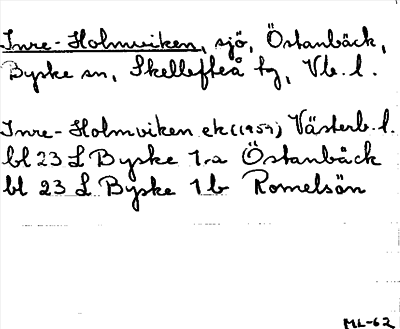 Inre-Holmviken, sjö, Östanbäck,
Byske sn, Skellefteå tg, Vb. l.
Inre-Holmviken ek (1959) Västerb. l.
bl 23 L Byske 1a Östanbäck
bl 23 L Byske 1b Romelsön
ML-62